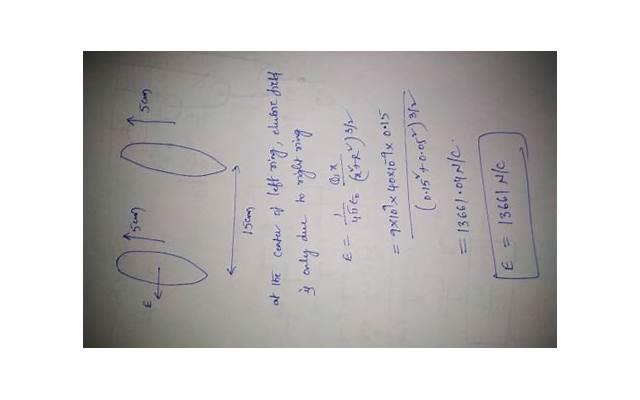 E
5cm
5cm
15cm
at the center of left ring, electric field
is only due to right ring
E = 1/4πε₀ Qx/(x²+R²)^3/2
= 9×10⁹×40×10⁻⁹×0.15
(0.15²+0.05²)^3/2
= 13661.04 N/C.
E = 13661 N/C